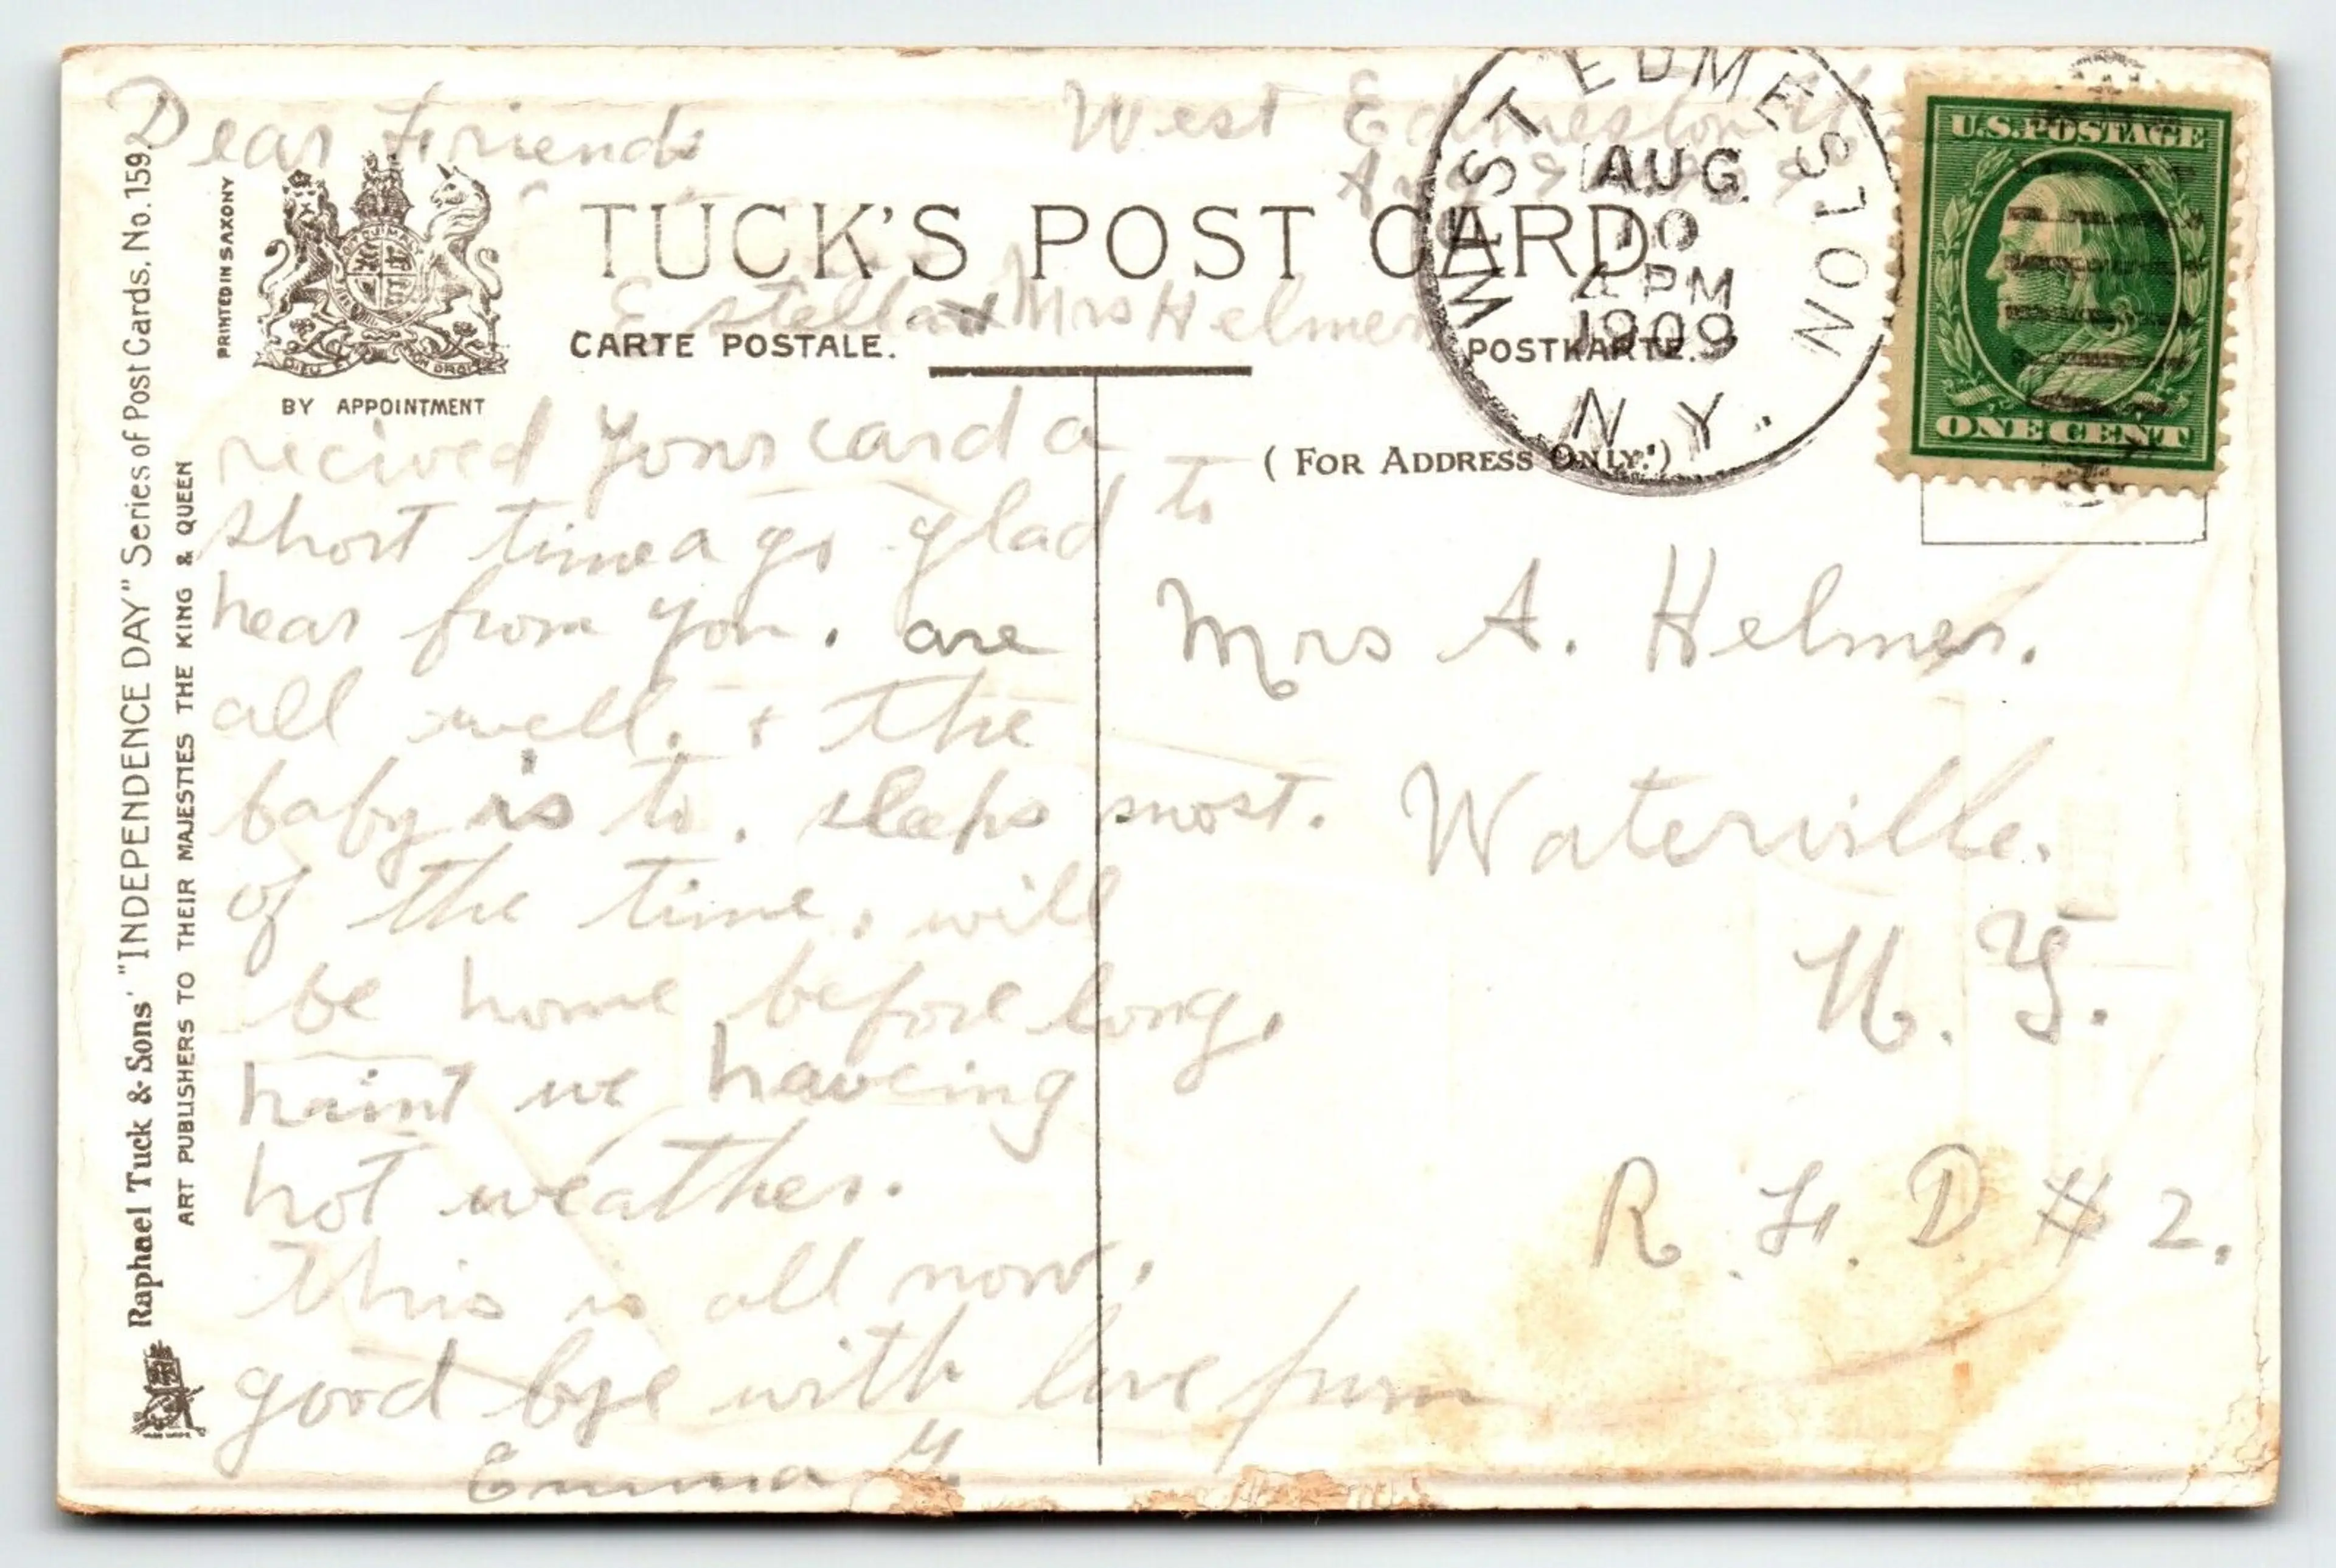 Dear Friends
West Edmeston
Aug
Estella & Mrs Helmer
recived your card a
short time a go glad to
hear from you. are
all well. & the
baby is to. sleeps most.
of the time. will
be home before long.
haint we haveing
hot weather.
This is all now.
good bye with love from
Emma
TUCK'S POST CARD
CARTE POSTALE.
POSTKARTE.
(FOR ADDRESS ONLY.)
BY APPOINTMENT
DIEU ET MON DROIT
PRINTED IN SAXONY
Raphael Tuck & Sons' "INDEPENDENCE DAY" Series of Post Cards. No. 159
ART PUBLISHERS TO THEIR MAJESTIES THE KING & QUEEN
WEST EDMESTON
AUG
10
4 PM
1909
N.Y.
U.S. POSTAGE
ONE CENT
Mrs A. Helmer.
Waterville.
N. Y.
R. F. D # 2.